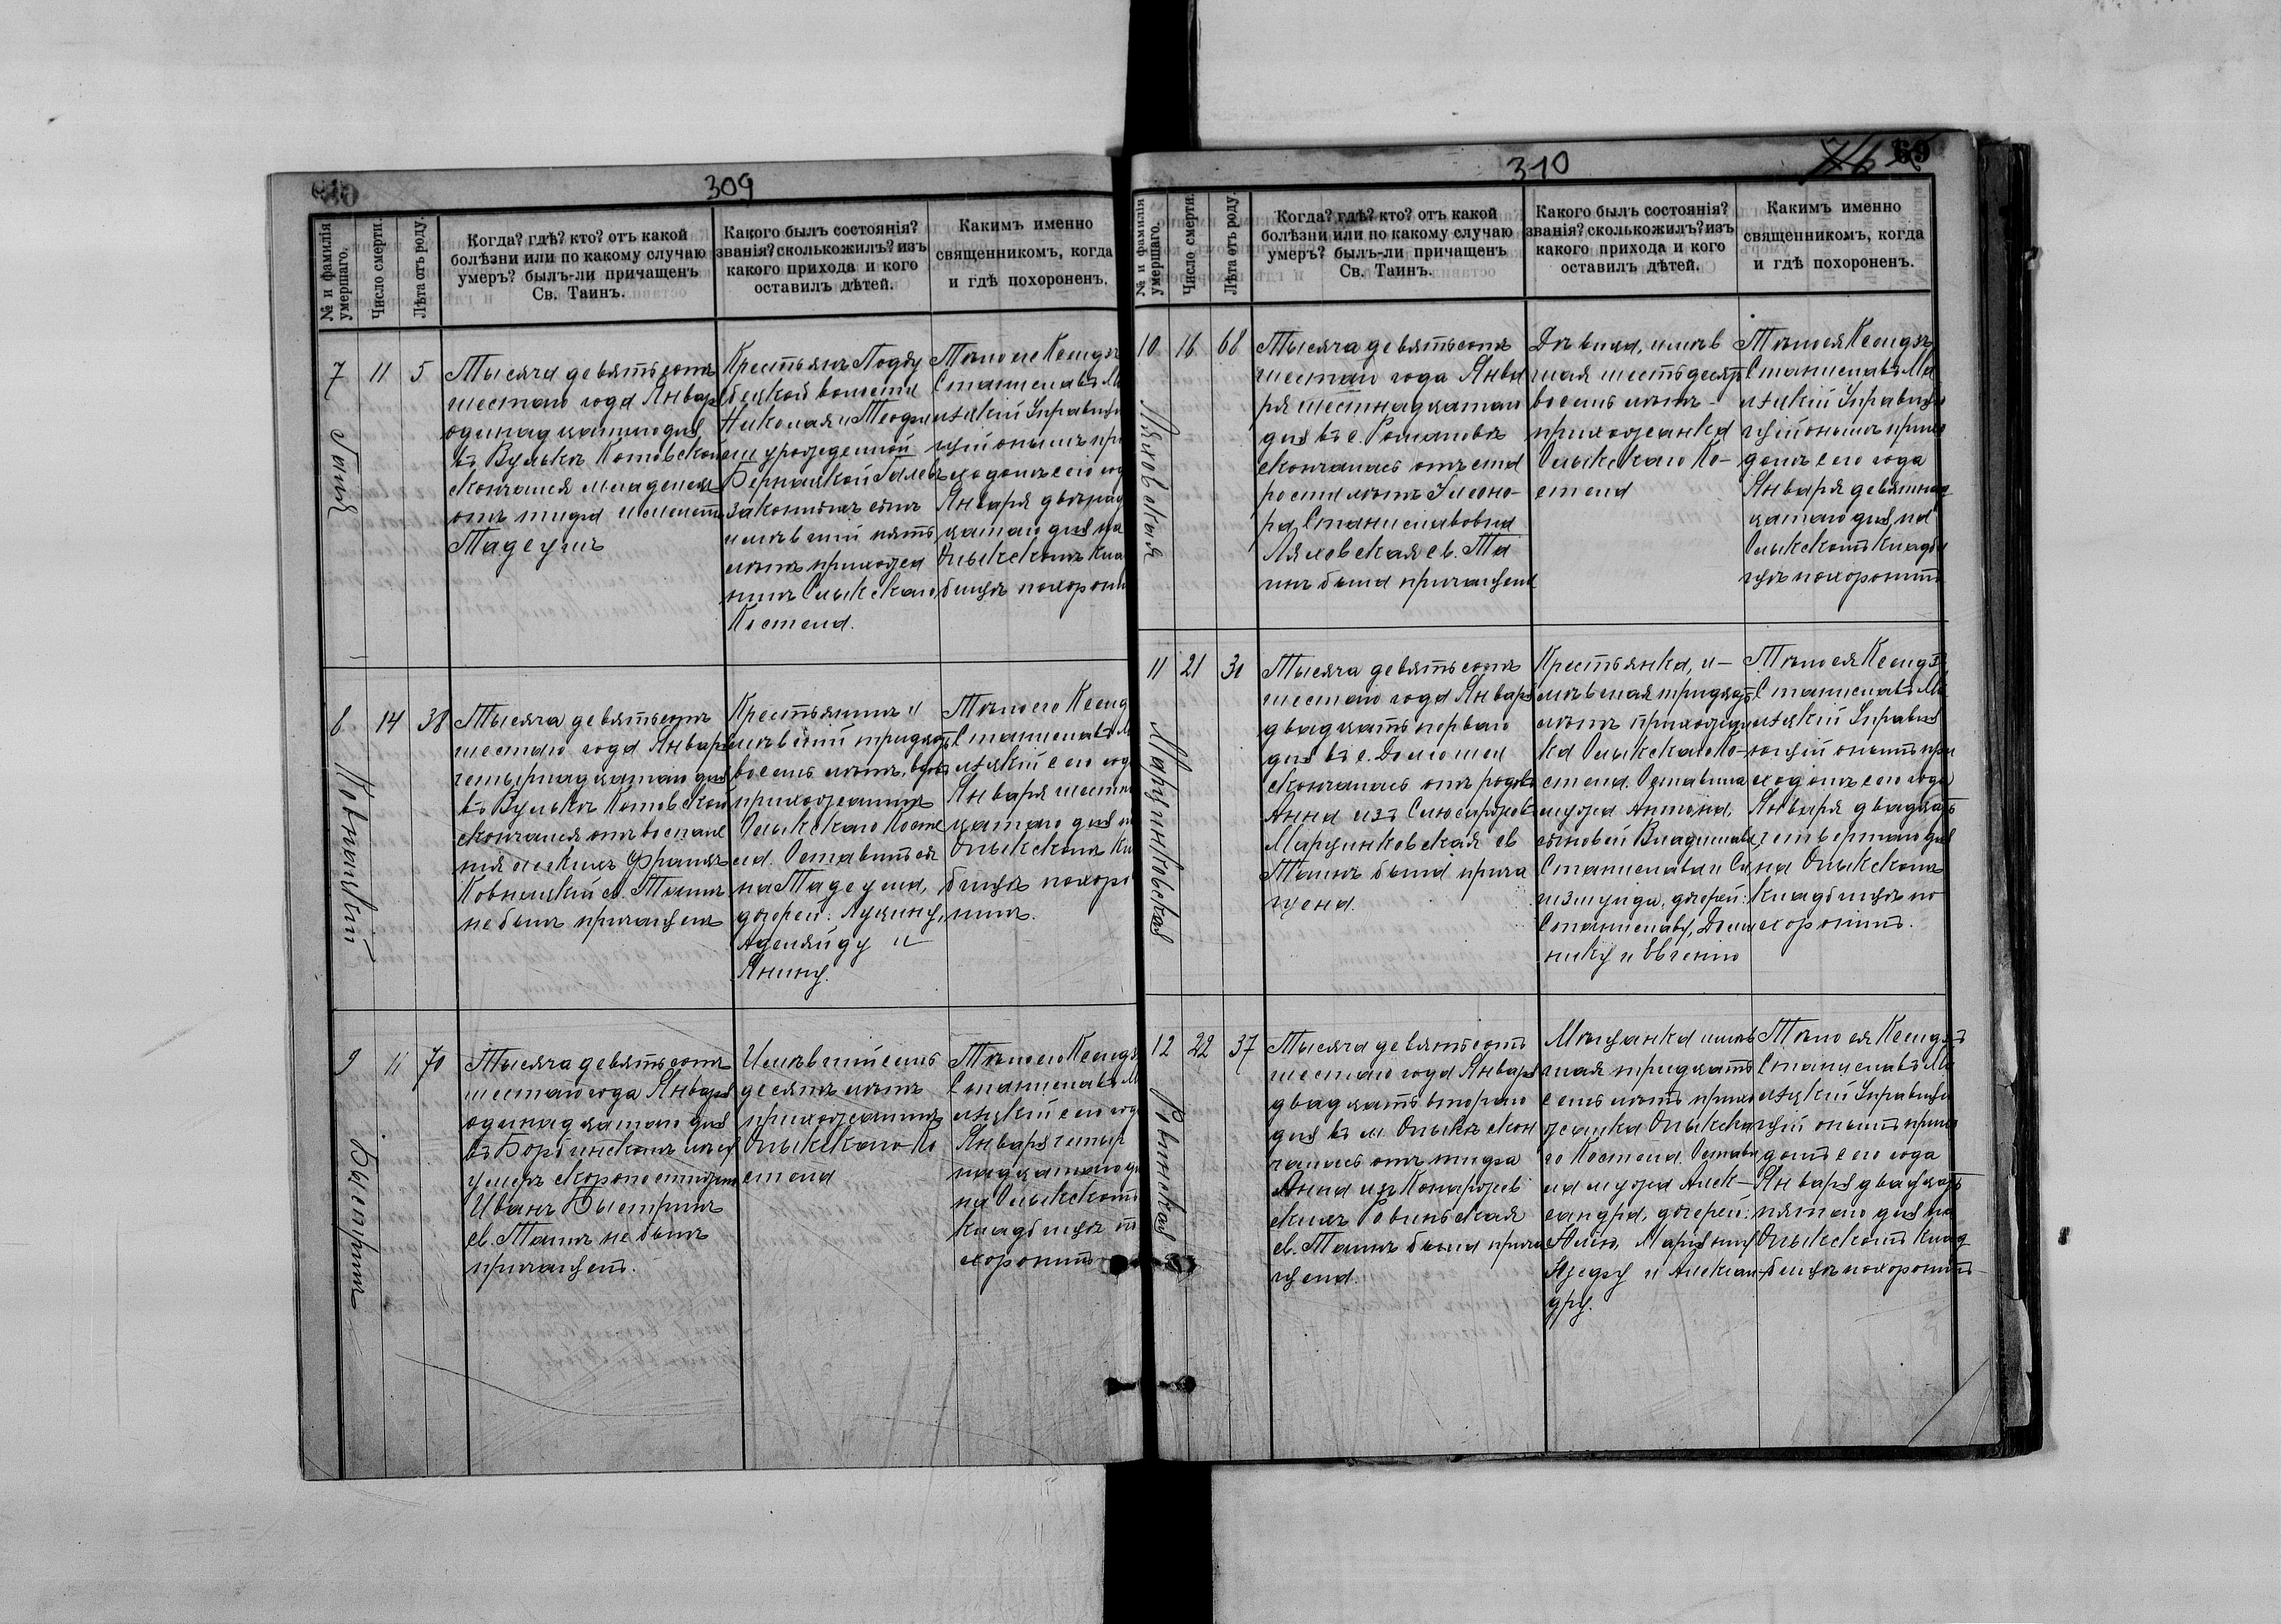 309
№ и фамилія умершаго.
Число смерти.
Лѣта отъ роду.
Когда? гдѣ? кто? отъ какой
болѣзни или по какому случаю
умеръ? былъ-ли причащенъ
Св. Таинъ.
Какого былъ состоянія?
званія? сколько жилъ? изъ
какого прихода и кого
оставилъ дѣтей.
Какимъ именно
священникомъ, когда
и гдѣ похороненъ.
7
11
5
Тысяча девятьсотъ
шестаго года Январ
одинадцатаго дня
въ Вулькѣ Котовской
скончался младенецъ
отъ тифа
Тадеушъ
Крестьянъ Подду
бецкой волости
Николая и Теофи
ли урожденной
законныхъ сынъ
имѣвшій пять
лѣтъ прихожа
нинъ Олыкскаго
Костела.
Тѣло его Ксендзъ
Станиславъ
Управляю
щій онымъ при
ходомъ сего год
Января двѣнад
цатаго дня на
Олыкскомъ Кла
бищѣ похорони
8
Ковницкій
14
38
Тысяча девятьсотъ
шестаго года Январ
четырнадцатаго дня
въ Вулькѣ Котовской
скончался отъ воспале
нія легкихъ Францъ
Ковницкій св. Таинъ
не былъ причащенъ
Крестьянинъ и
мѣвшій тридцать
восемь лѣтъ, вдов
прихожанинъ
Олыкскаго Косте
ла. Оставилъ сы
на Тадеуша,
дочерей: Луцину,
Аделяйду и
Янину.
Тѣло его Ксенд
Станиславъ
сего год
Января шестн
цатаго дня н
Олыкскомъ Кл
бищѣ похоро
нилъ.
9
Быстримъ
11
70
Тысяча девятьсотъ
шестаго года Январ
одинадцатаго дня
въ лѣсу
умеръ скоропостижно
Иванъ Быстримъ
св. Таинъ не былъ
причащенъ.
Имѣвшій семь
десятъ лѣтъ
прихожанинъ
Олыкскаго Ко
стела
Тѣло его Ксендз
Станиславъ
сего год
Января четыр
надцатаго д
на Олыкскомъ
Кладбищѣ по
хоронилъ
310
69
№ и фамилія умершаго.
Число смерти.
Лѣта отъ роду.
Когда? гдѣ? кто? отъ какой
болѣзни или по какому случаю
умеръ? былъ-ли причащенъ
Св. Таинъ.
Какого былъ состоянія?
званія? сколько жилъ? изъ
какого прихода и кого
оставилъ дѣтей.
Какимъ именно
священникомъ, когда
и гдѣ похороненъ.
10
Ляховская
16
68
Тысяча девятьсотъ
шестаго года Янва
ря шестнадцатаго
дня въ с. Романовѣ
скончалась отъ ста
рости лѣтъ Элеоно-
ра Станиславовна
Ляховская св. Та
инъ была причащена
Дѣвица, имѣв
шая шестьдесятъ
восемь лѣтъ -
прихожанка
Олыкскаго Ко-
стела
Тѣло ея Ксендзъ
Станиславъ
Управляю
щій онымъ прихо
домъ сего года
Января девятнад
цатаго дня на
Олыкскомъ Кладби
щѣ похоронилъ
11
Марцинковская
21
30
Тысяча девятьсотъ
шестаго года Январ
двадцать перваго
дня въ с.
скончалась отъ родовъ
Анна изъ
Марцинковская св
Таинъ была прича
щена.
Крестьянка, и-
мѣвшая тридцать
лѣтъ прихожан
ка Олыкскаго Ко-
стела. Оставила
мужа Антона,
сыновей Владислава
Станислава и Си
гизмунда, дочерей:
Станиславу, Доми
нику и Евгенію
Тѣло ея Ксендзъ
Станиславъ
Управля
ющій онымъ при
ходомъ сего года
Января двадцать
четвертаго дня
на Олыкскомъ
Кладбищѣ по
хоронилъ.
12
Ровинская
22
37
Тысяча девятьсотъ
шестаго года Январ
двадцать втораго
дня въ м. Олыкѣ скон
чалась отъ тифа
Анна
Ровинская
св. Таинъ была прича
щена.
Мѣщанка имѣв
шая тридцать
семь лѣтъ прихо
жанка Олыкска
го Костела. Остави
ла мужа Алек-
сандра, дочерей:
и Алексан-
дру.
Тѣло ея Ксендзъ
Станиславъ
Управляю
щій онымъ прихо
домъ сего года
Января двадцать
пятаго дня на
Олыкскомъ Клад
бищѣ похоронилъ